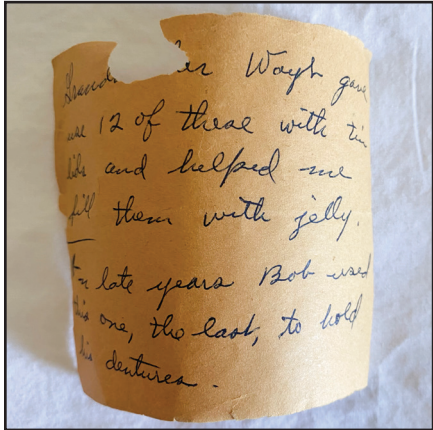 gave
me 12 of these with tin
lids and helped me
fill them with jelly.
In late years Bob used
this one, the last, to hold
his dentures.